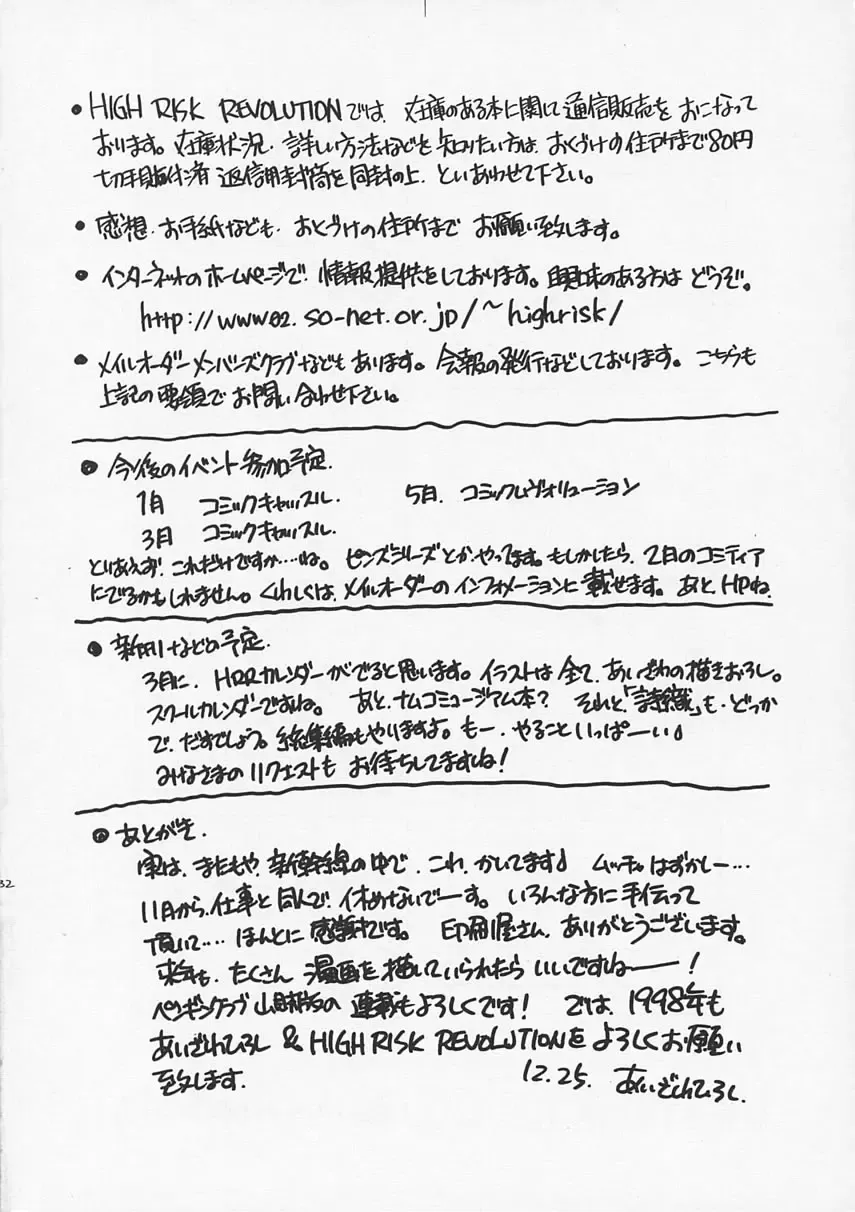 • HIGH RISK REVOLUTIONでは、在庫のある本に関して通信販売をおこなって
おります。在庫状況、詳しい方法などを知りたい方は、おくづけの住所まで80円
切手貼付済 返信用封筒を同封の上、といあわせて下さい。
• 感想、お手紙なども、おくづけの住所まで お願い致します。
• インターネットのホームページで、情報提供をしております。興味のある方は どうぞ。
http://www02.so-net.or.jp/~highrisk/
• メイルオーダーメンバーズクラブなどもあります。会報の発行などしております。こちらも
上記の要領でお問い合わせ下さい。
• 今後のイベント参加予定.
1月 コミックキャッスル. 5月. コミックレヴォリューション
3月 コミックキャッスル.
とりあえず、これだけですか……ね。ピンズシリーズとか、やってます。もしかしたら、2月のコミティア
にでるかもしれません。くわしくは、メイルオーダーのインフォメーションに載せます。あと、HPね.
• 新刊などの予定.
3月に、HRRカレンダーがでると思います。イラストは全て、あいざわの描きおろし。
スクールカレンダーですね。 あと、ナムコミュージアム本? それと、「詩織」も、どっか
で、だすでしょう。総集編もやりますよ。もー、やることいっぱーい♪
みなさまのリクエストも お待ちしてますね!
• あとがき.
実は、またもや、新幹線の中で、これ、かいてます♪ ムッチャはずかしー…
11月から、仕事と同人で、休めないでーす。いろんな方に手伝って
頂いて…. ほんとに 感謝です。 印刷屋さん、ありがとうございます。
来年も、たくさん 漫画を描いていられたら いいですねー!
ペンギンクラブ山賊版の 連載もよろしくです! では、1998年も
あいざわひろし & HIGH RISK REVOLUTIONを よろしくお願い
致します. 12.25. あいざわひろし.
32